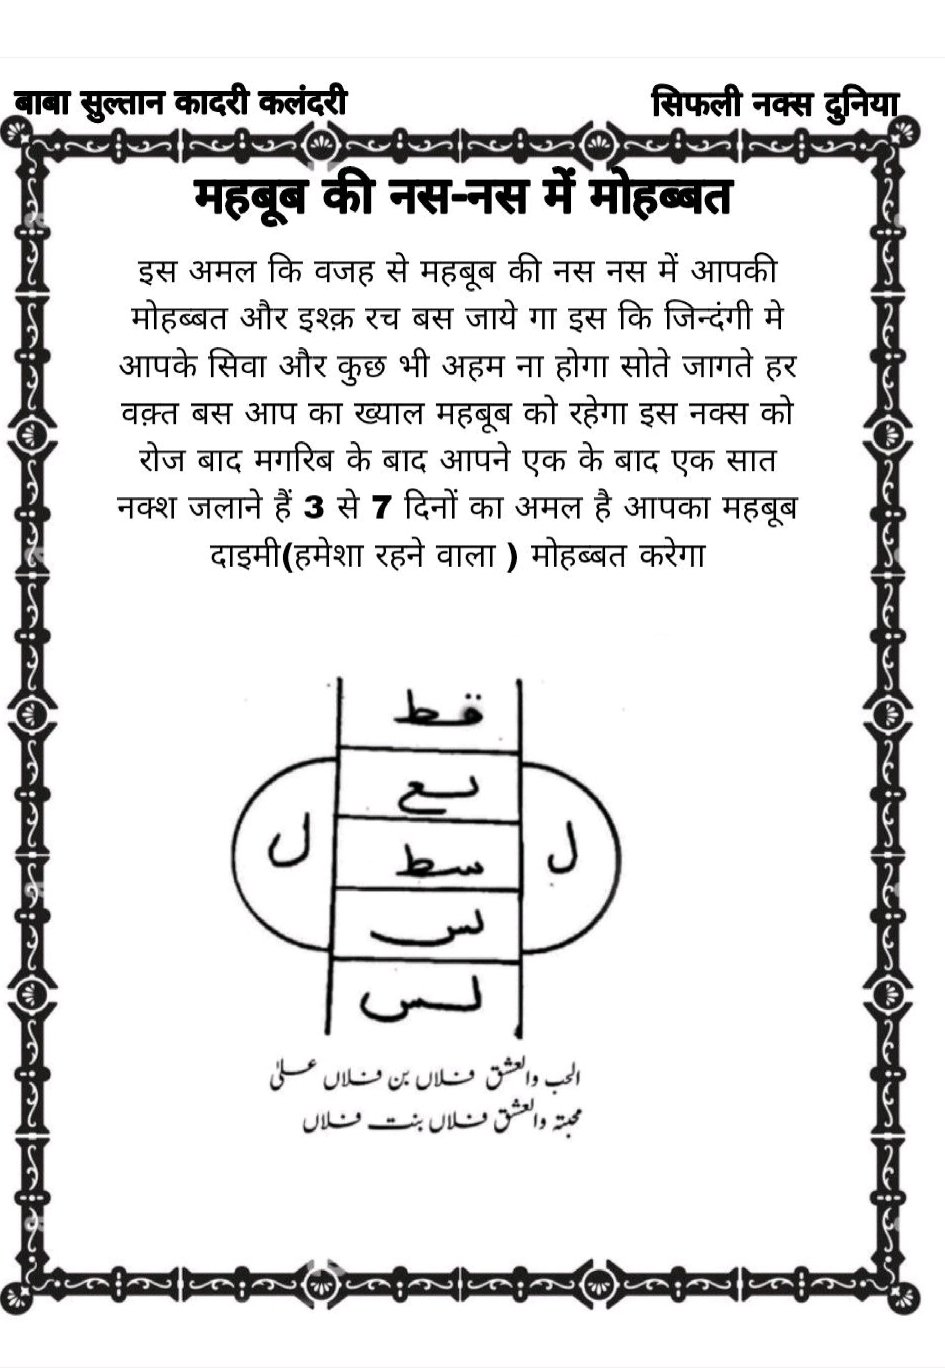 बाबा सुल्तान कादरी कलंदरी
सिफली नक्स दुनिया
महबूब की नस-नस में मोहब्बत
इस अमल कि वजह से महबूब की नस नस में आपकी
मोहब्बत और इश्क़ रच बस जाये गा इस कि जिन्दंगी मे
आपके सिवा और कुछ भी अहम ना होगा सोते जागते हर
वक़्त बस आप का ख्याल महबूब को रहेगा इस नक्स को
रोज बाद मगरिब के बाद आपने एक के बाद एक सात
नक्श जलाने हैं 3 से 7 दिनों का अमल है आपका महबूब
दाइमी(हमेशा रहने वाला ) मोहब्बत करेगा
قط
لع
ل
ل
سط
لس
لس
الحب والعشق فلاں بن فلاں علیٰ
محبتہ والعشق فلاں بنت فلاں